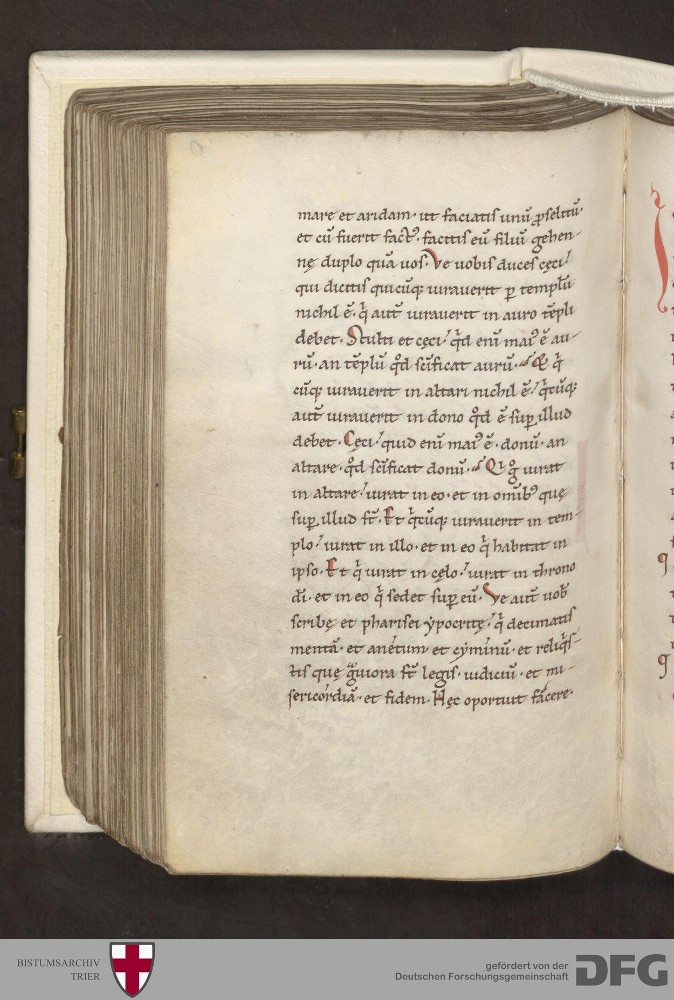 mare et aridam · ut faciatis unū ꝓselitū ·
et cū fuerit fact᷒ · facitis eū filiū gehen-
nę duplo quā uos · Ve uobis duces cęci /
qui dicitis quicūq; iurauerit p̱ templū
nichil ē · q̇ autē iurauerit in auro tēpli
debet · Stulti et cęci / qͥd enī mai᷒ ē au-
rū · an tēplū qͦd scīficat aurū · Et q̇
cūq; iurauerit in altari nichil ē / q̇cūq;
autē iurauerit in dono qͦd ē suꝑ illud
debet · Cęci / quid enī mai᷒ ē · donū · an
altare · qͦd scīficat donū · Qi gͦ iurat
in altare / iurat in eo · et in omīb᷒ quę
suꝑ illud st̄ · Et q̇cūq; iurauerit in tem-
plo / iurat in illo · et in eo q̇ habitat in
ipso · Et q̇ iurat in cęlo / iurat in throno
dī · et in eo q̇ sedet suꝑ eū · Ve autē uob̄
scribę et pharisei ypocritę / q̇ decimatis
mentā · et anetum · et cyminū · et reliq̇s-
tis quę gͣuiora st̄ legis · iudiciū · et mi-
sericordiā · et fidem · Hęc oportuit facere ·
BISTUMSARCHIV
TRIER
gefördert von der
Deutschen Forschungsgemeinschaft
DFG